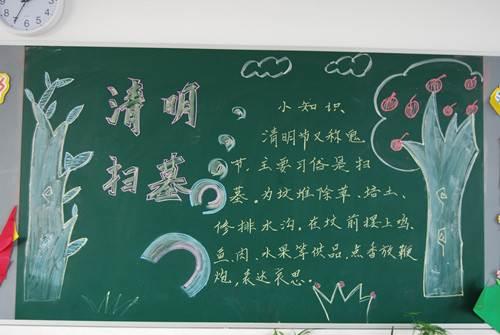 清明
扫墓
小知识
清明节又称鬼
节，主要习俗是扫
墓。为坟堆除草、培土、
修排水沟，在坟前摆上鸡、
鱼、肉、水果等供品，点香放鞭
炮，表达哀思。